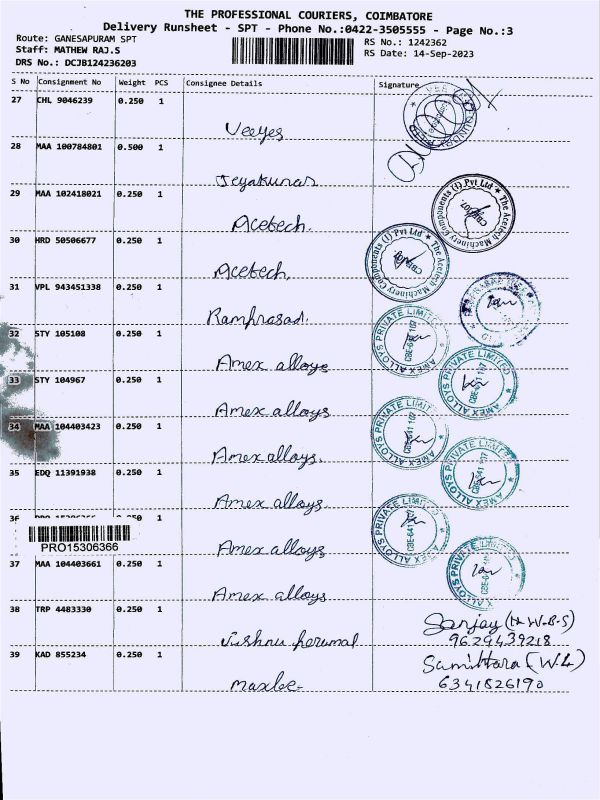 THE PROFESSIONAL COURIERS, COIMBATORE
Delivery Runsheet - SPT - Phone No.:0422-3505555 - Page No.:3
Route: GANESAPURAM SPT
RS No.: 1242362
Staff: MATHEW RAJ.S
RS Date: 14-Sep-2023
DRS No.: DCJB124236203
S No Consignment No Weight PCS Consignee Details Signature
27 CHL 9046239 0.250 1
Veeyes
28 MAA 100784801 0.500 1
Jeyakumar
29 MAA 102418021 0.250 1
Acetech.
The Acetech Machinery Components (I) Pvt Ltd
30 HRD 50506677 0.250 1
Acetech.
The Acetech Machinery Components (I) Pvt Ltd
31 VPL 943451338 0.250 1
Ramprasad.
32 STY 105108 0.250 1
Amex alloys
AMEX ALLOYS PRIVATE LIMITED
CBE-641 107
33 STY 104967 0.250 1
Amex alloys
AMEX ALLOYS PRIVATE LIMITED
CBE-641 107
34 MAA 104403423 0.250 1
Amex alloys.
AMEX ALLOYS PRIVATE LIMITED
CBE-641 107
35 EDQ 11391938 0.250 1
Amex alloys
AMEX ALLOYS PRIVATE LIMITED
36 1
PRO15306366
Amex alloys
AMEX ALLOYS PRIVATE LIMITED
37 MAA 104403661 0.250 1
Amex alloys
AMEX ALLOYS PRIVATE LIMITED
38 TRP 4483330 0.250 1
Vishnu perumal
Sanjay
9629439218
39 KAD 855234 0.250 1
Maxbee
6341826190